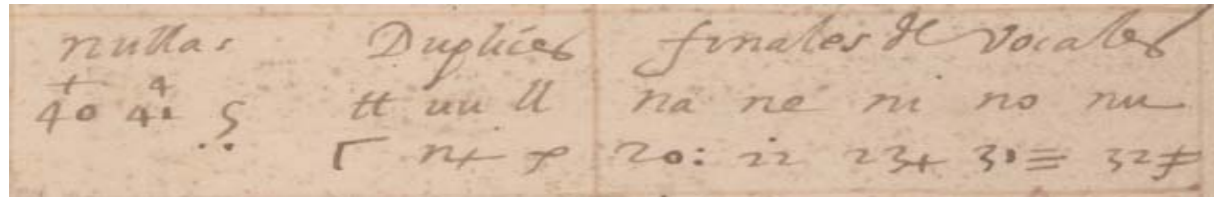 nullas Duplices finales de Vocales
tt uu ll na ne ni no nu
40 n+ 20: 22 23+ 32